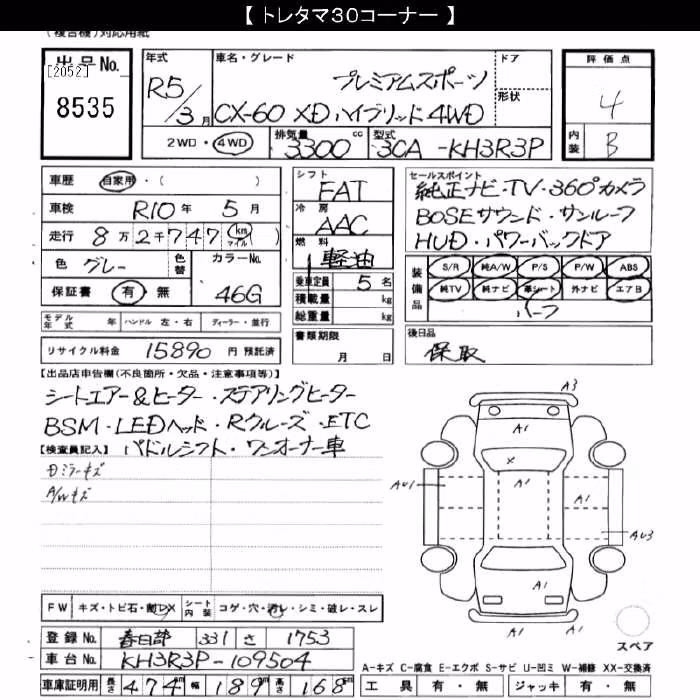 【 トレタマ30コーナー 】
(複合機)対応用紙
出品No.
[2052]
8535
年式
R5/3月
車名・グレード
プレミアムスポーツ
CX-60 XD ハイブリッド 4WD
ドア
形状
評価点
4
内装
B
2WD・4WD
排気量
3300 cc
型式
3CA-KH3R3P
車歴 自家用・( )
車検 R10年 5月
走行 8万2千747 km マイル ( )
色 グレー
色替
カラーNo.
46G
保証書 有・無
シフト
FAT
冷房
AAC
燃料
軽油
乗車定員 5名
積載量 kg
総重量 kg
セールスポイント
純正ナビ・TV・360°カメラ
BOSEサウンド・サンルーフ
HUD・パワーバックドア
装備品
S/R 純A/W P/S P/W ABS
純TV 純ナビ 革シート 外ナビ エアB
ハーフ
モデル年式 年 ハンドル 左・右 ディーラー・並行
リサイクル料金 15890 円 預託済
書類期限
月 日
後日品
保取
【出品店申告欄(不良箇所・欠品・注意事項等)】
シートエアー&ヒーター・ステアリングヒーター
BSM・LEDヘッド・Rクルーズ・ETC
パドルシフト・ワンオーナー車
【検査員記入】
ミラーキズ
A/Wキズ
A3
A1
X
A1
AU1
A1
AU3
A1
A1
スペア
FW キズ・トビ石・割・X シート内装 コゲ・穴・汚レ・シミ・破レ・スレ
登録No. 春日部 331 さ 1753
車台No. KH3R3P-109504
車庫証明用 長さ 474cm 幅 189cm 高さ 168cm
A-キズ C-腐食 E-エクボ S-サビ U-凹ミ W-補修 XX-交換済
工具 有・無 ジャッキ 有・無